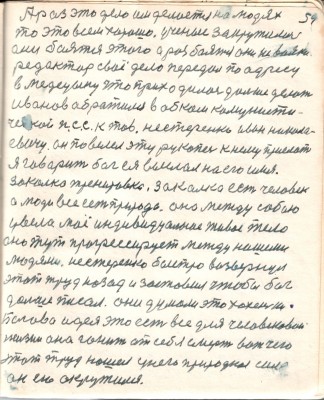 А раз это дело им делается на людях 59
то это всем хорошо, ученые закружились
они боятся этого а раз боятся они не
редактор своё дело передал по адресу
в медецыну это приходилось дальше делать
Иванов обратился в обком комунисти-
ческой п.с.с. к тов. нестеренко иван никола-
евичу. он повелел эту рукопись к нему прислать
я говорит бог ея выслал на его имя.
закалка тренировка. закалка есть человек
а люди все есть природа. она между собою
ввела моё индивидуальное живое тело
оно тут прогрессирует между нашими
людями. нестеренко быстро возвернул
этот труд назад и заставил чтобы бог
дальше писал. они думали это
Богова идея это есть все для человеческой
жизни она гонит от себя смерть вот чего
этот труд нашел у него природная сила
он ею окружился.